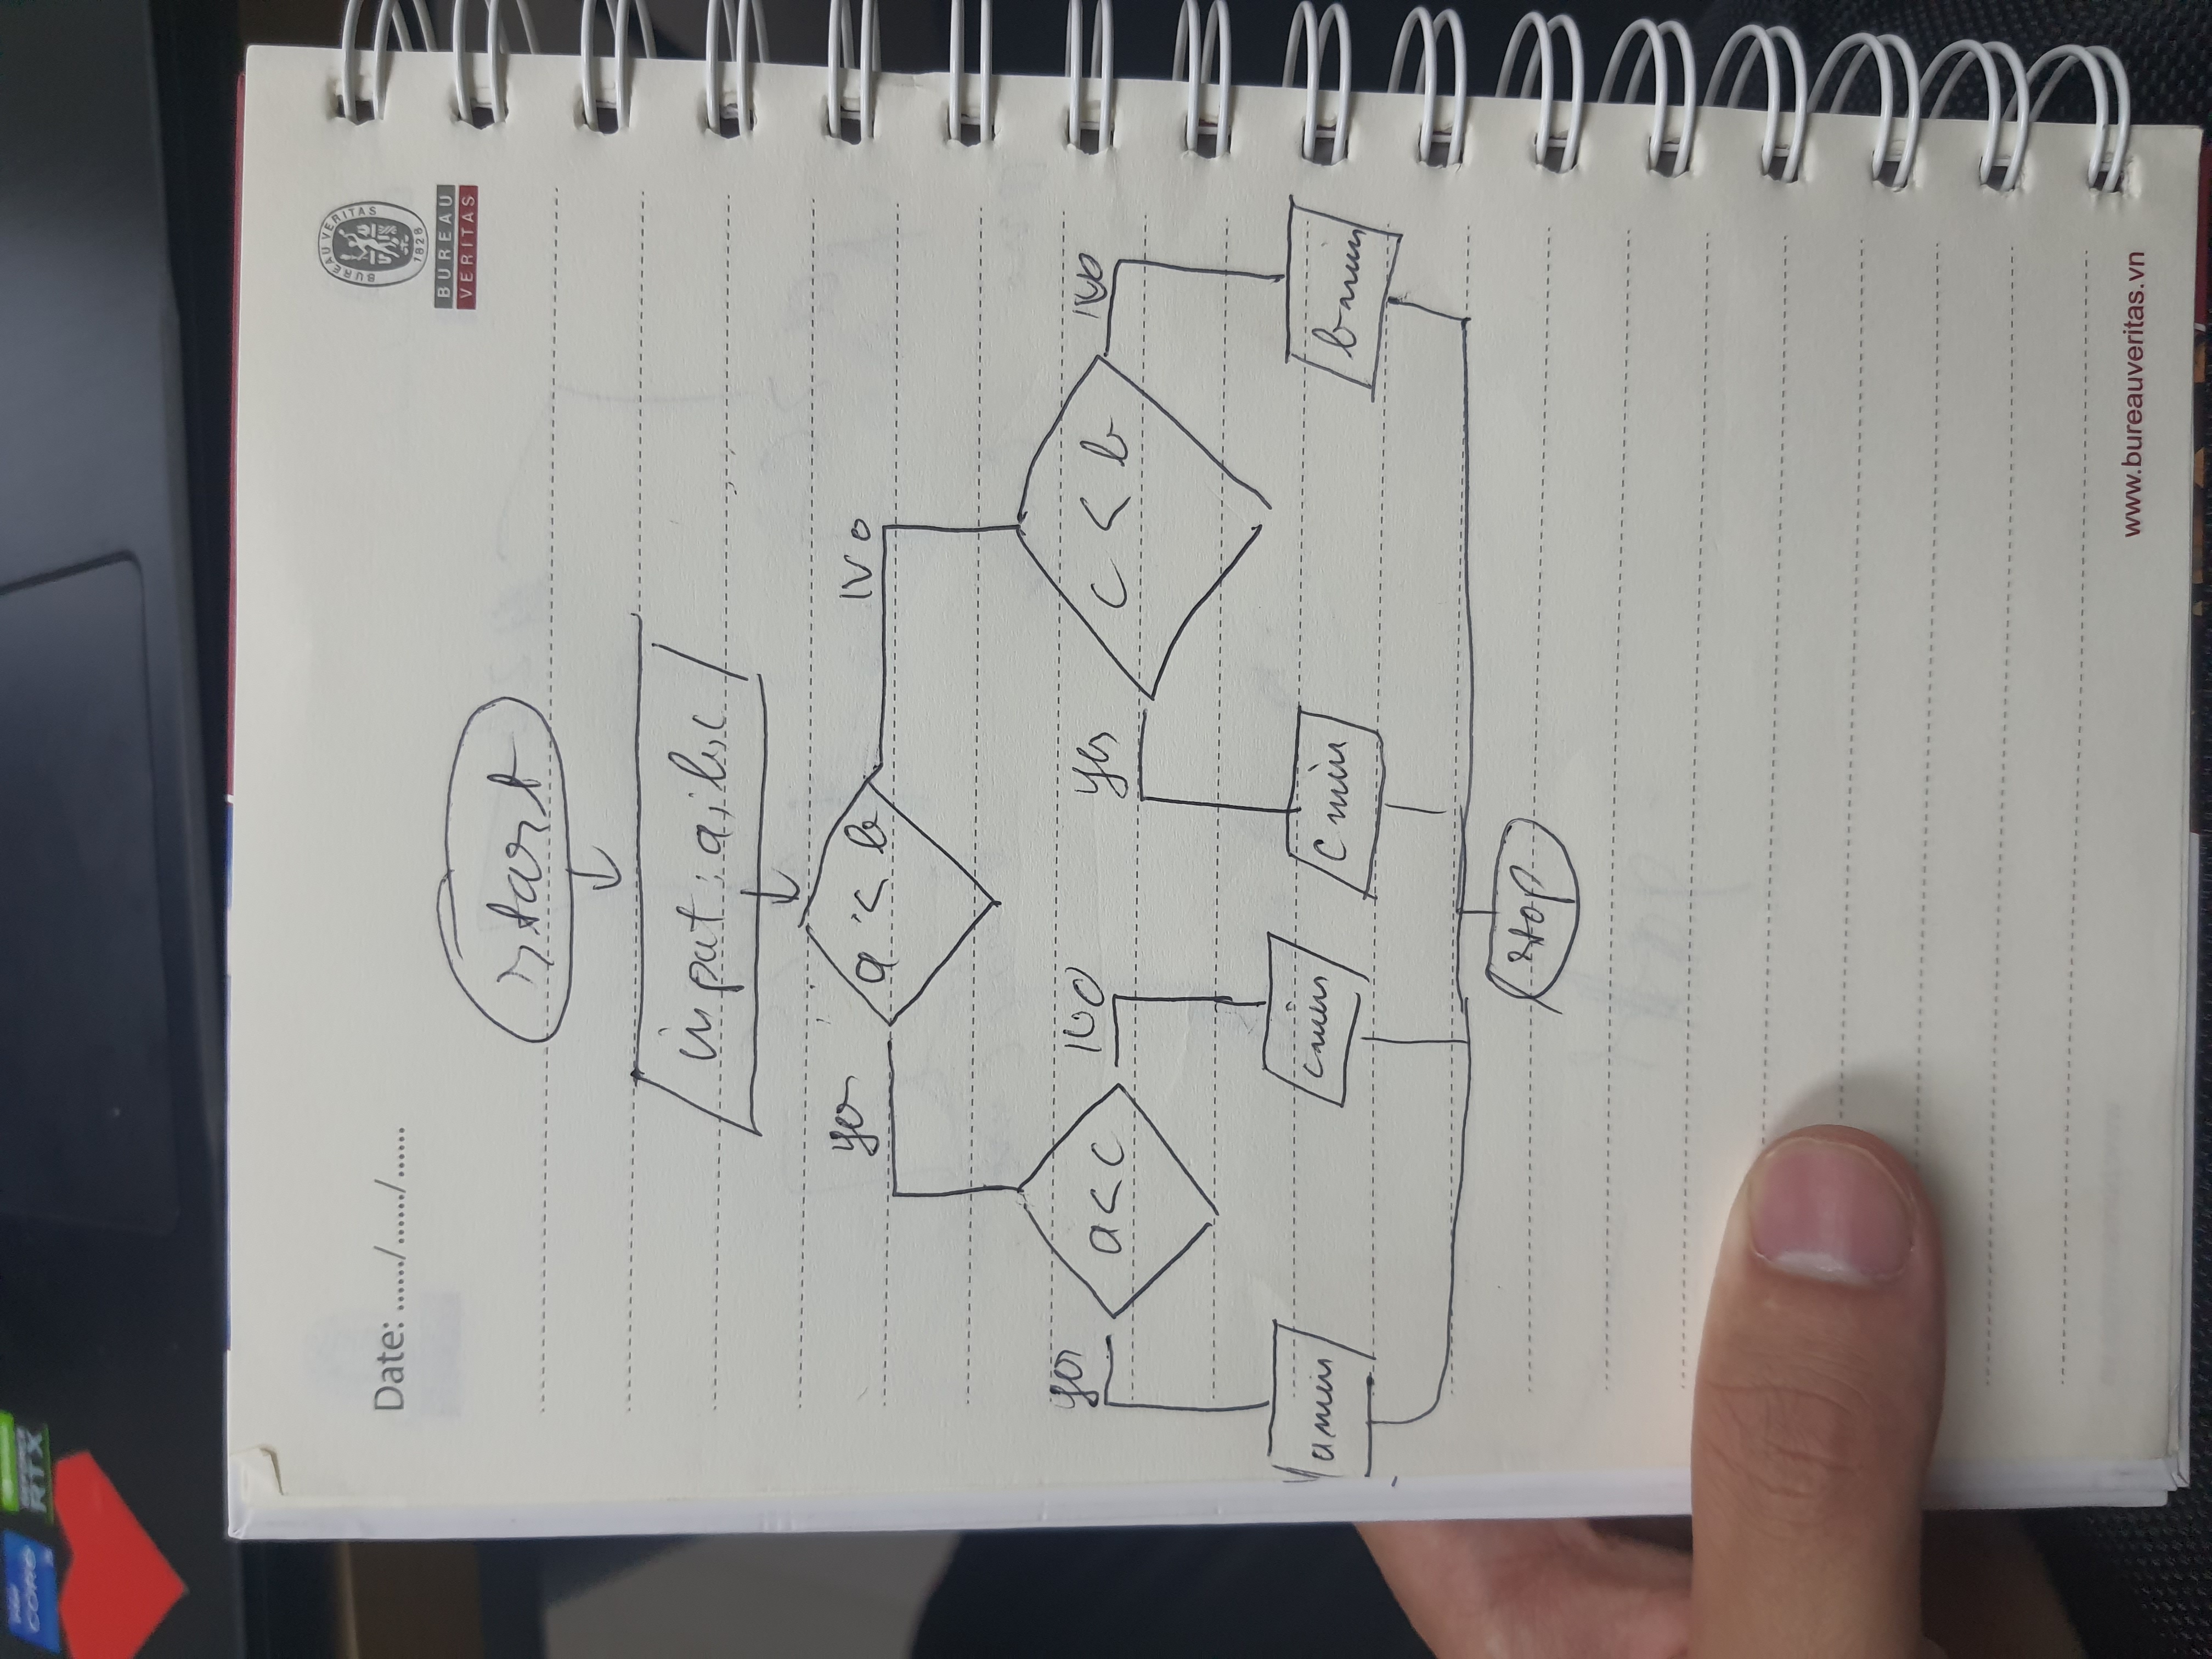 intel
CORE
i5
GEFORCE
RTX
Date: ....../....../......
BUREAU VERITAS
1828
BUREAU
VERITAS
start
input: a; b, c
yes
a < b
No
yes
a < c
No
yes
c < b
No
a min
c min
c min
b min
stop
www.bureauveritas.vn